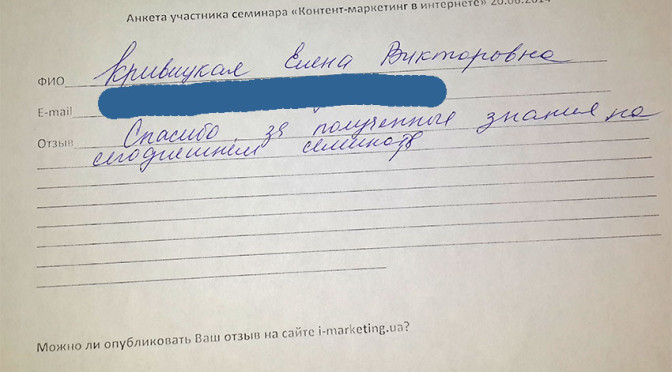 Анкета участника семинара «Контент-маркетинг в интернете» 20.06.2014
ФИО Кривицкая Елена Викторовна
E-mail
Отзыв Спасибо за полученные знания на
сегодняшнем семинаре
Можно ли опубликовать Ваш отзыв на сайте i-marketing.ua?